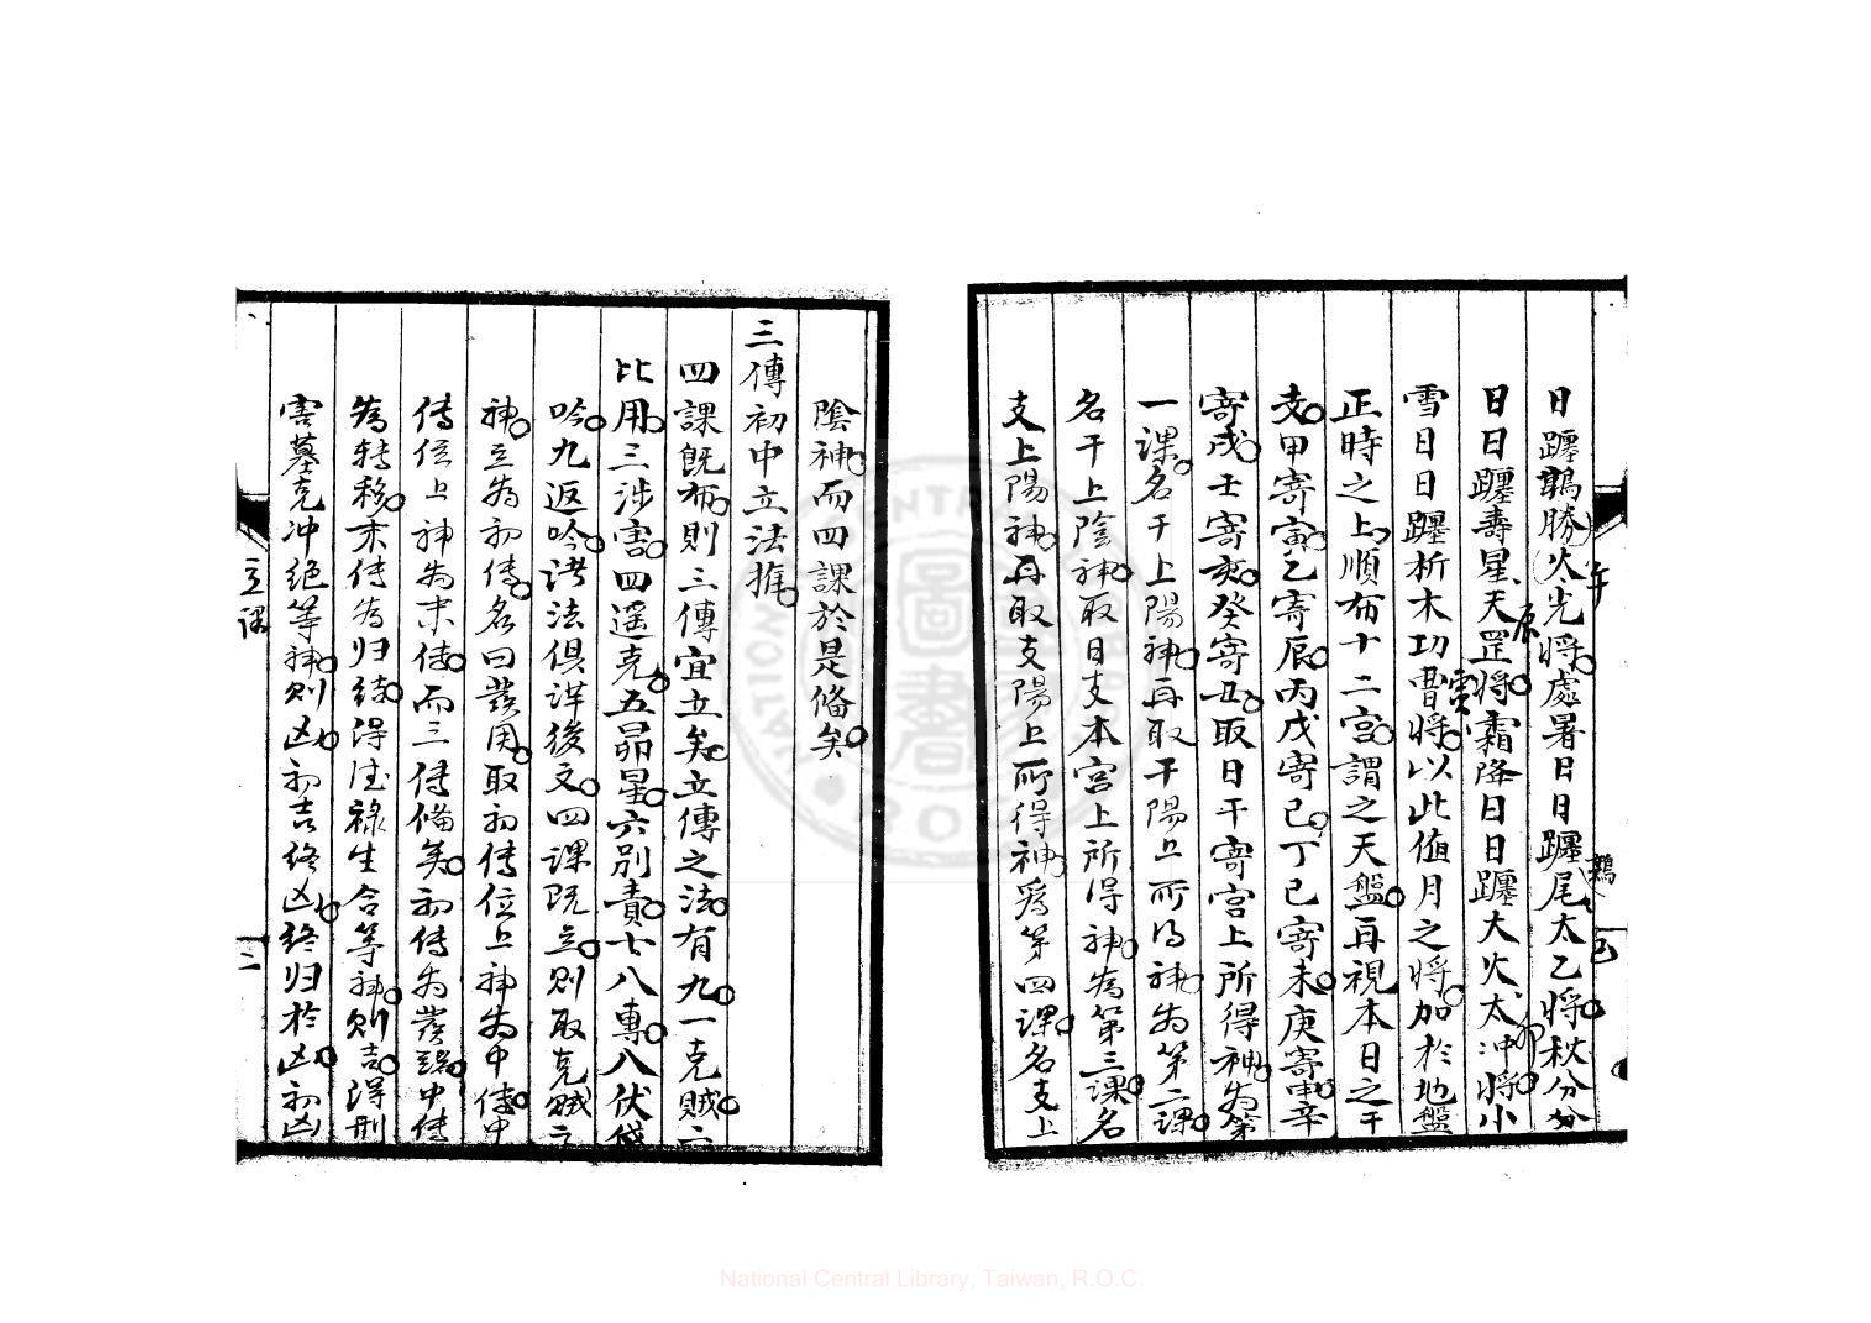 日躔鶉勝火光將處暑日日躔尾太乙將秋分分
日日躔壽星天罡將霜降日日躔大火太冲將小
雪日日躔析木功曹將以此值月之將加於地盤
正時之上順布十二宮謂之天盤再視本日之干
支甲寄寅乙寄辰丙戊寄巳丁己寄未庚寄申辛
寄戌壬寄亥癸寄丑取日干寄宮上所得神为第
一課名干上陽神再取干陽上所得神为第二課
名干上陰神取日支本宮上所得神为第三課名
支上陽神再取支陽上所得神爲第四課名支上
午
辰
寅
卯
鶉
巳
陰神而四課於是俻矣
三傳初中立法推
四課既布則三傳宜立矣立傳之法有九一克賊二
比用三涉害四遥克五昴星六别責七八專八伏
吟九返吟法俱詳後文四課既立则取克賊之
神立为初傳名曰發用取初傳位上神为中傳中
傳位上神为末傳而三傳俻矣初傳为發端中傳
为转移末传为归结得德祿生合等神则吉得刑
害墓克冲絶等神则凶初吉终凶终归於凶初凶
立課
二
National Central Library, Taiwan, R.O.C.